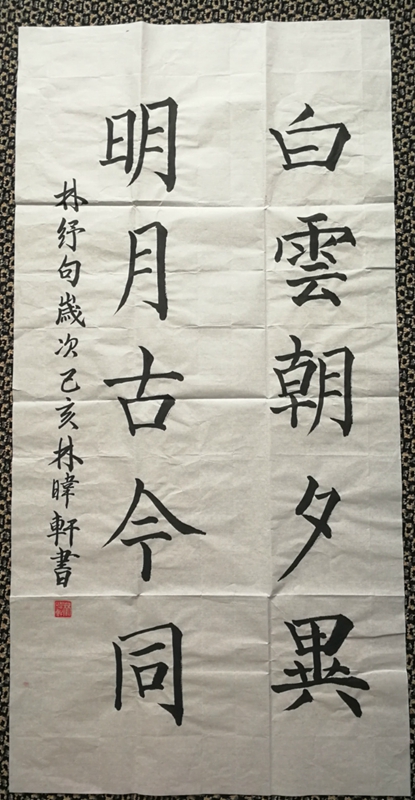 白雲朝夕異
明月古今同
林紓句歲次己亥林暐軒書